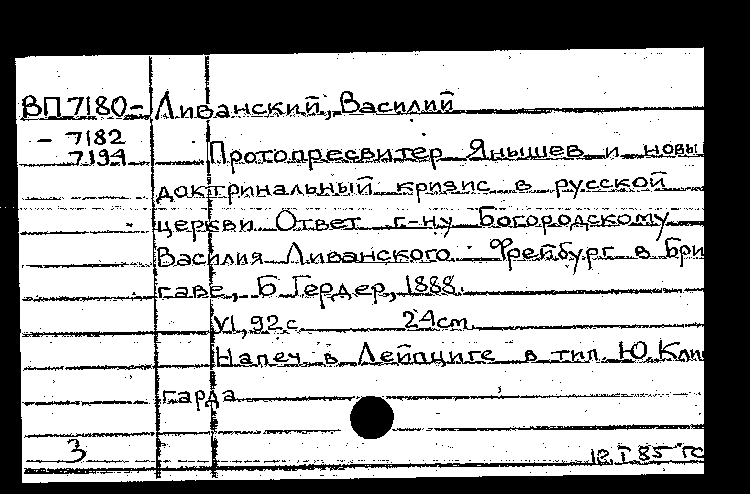 ВП 7180- Ливанский, Василий
- 7182
7194 Протопресвитер Янышев и новы
доктринальный кризис в русской
церкви. Ответ г-ну Богородскому
Василия Ливанского. Фрейбург в Бри
гаве, Б. Гердер, 1888.
VI, 92 с. 24 cm.
Напеч. в Лейпциге в тип. Ю. Клин
гарда
3 12.I 85